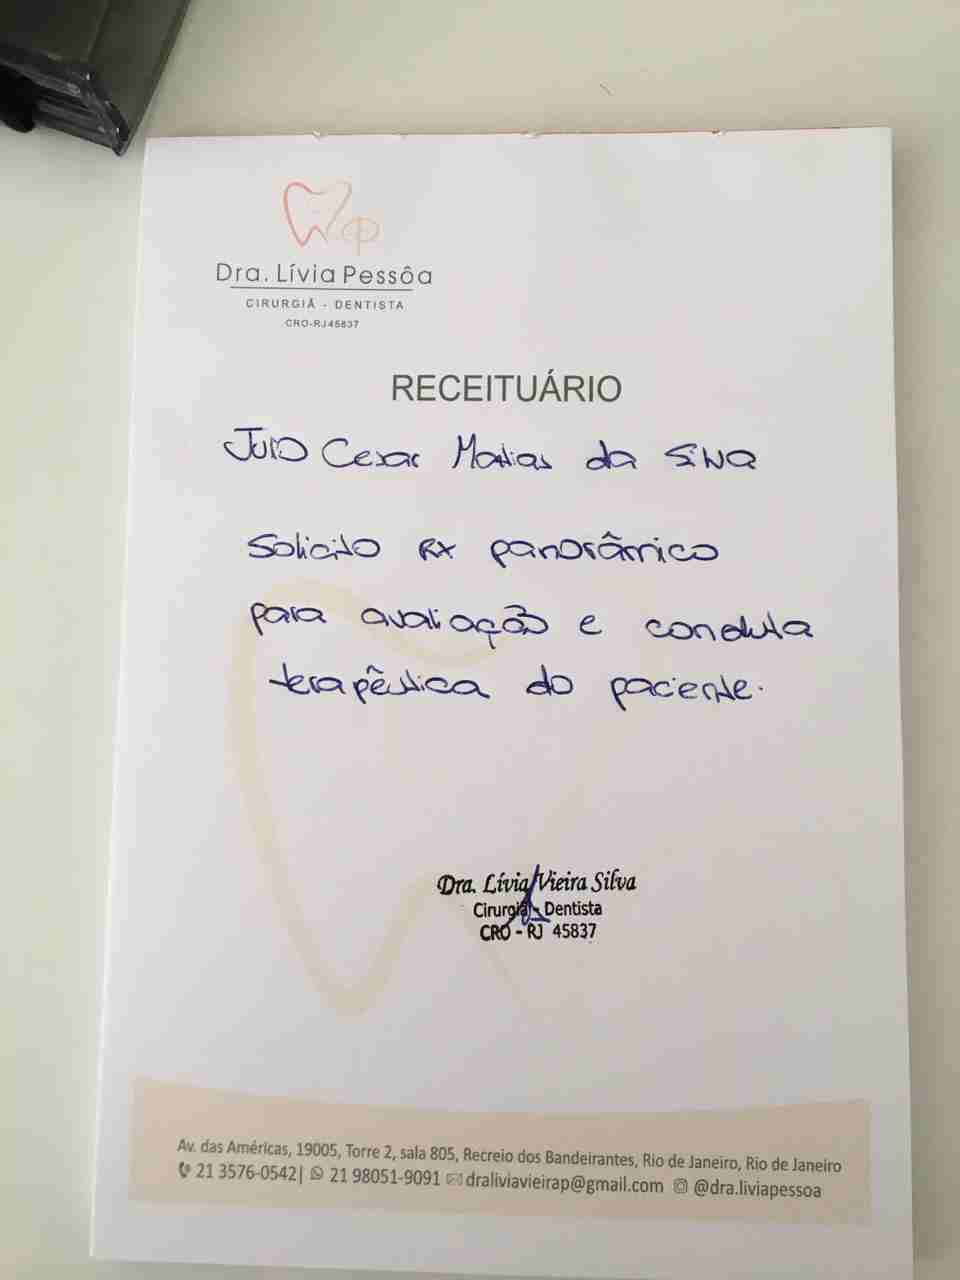 Dra. Lívia Pessôa
CIRURGIÃ - DENTISTA
CRO-RJ45837
RECEITUÁRIO
Julio Cesar Matias da Silva
Solicito RX panorâmico
para avaliação e conduta
terapêutica do paciente.
Dra. Lívia Vieira Silva
Cirurgiã - Dentista
CRO - RJ 45837
Av. das Américas, 19005, Torre 2, sala 805, Recreio dos Bandeirantes, Rio de Janeiro, Rio de Janeiro
21 3576-0542| 21 98051-9091 draliviavieirap@gmail.com @dra.liviapessoa